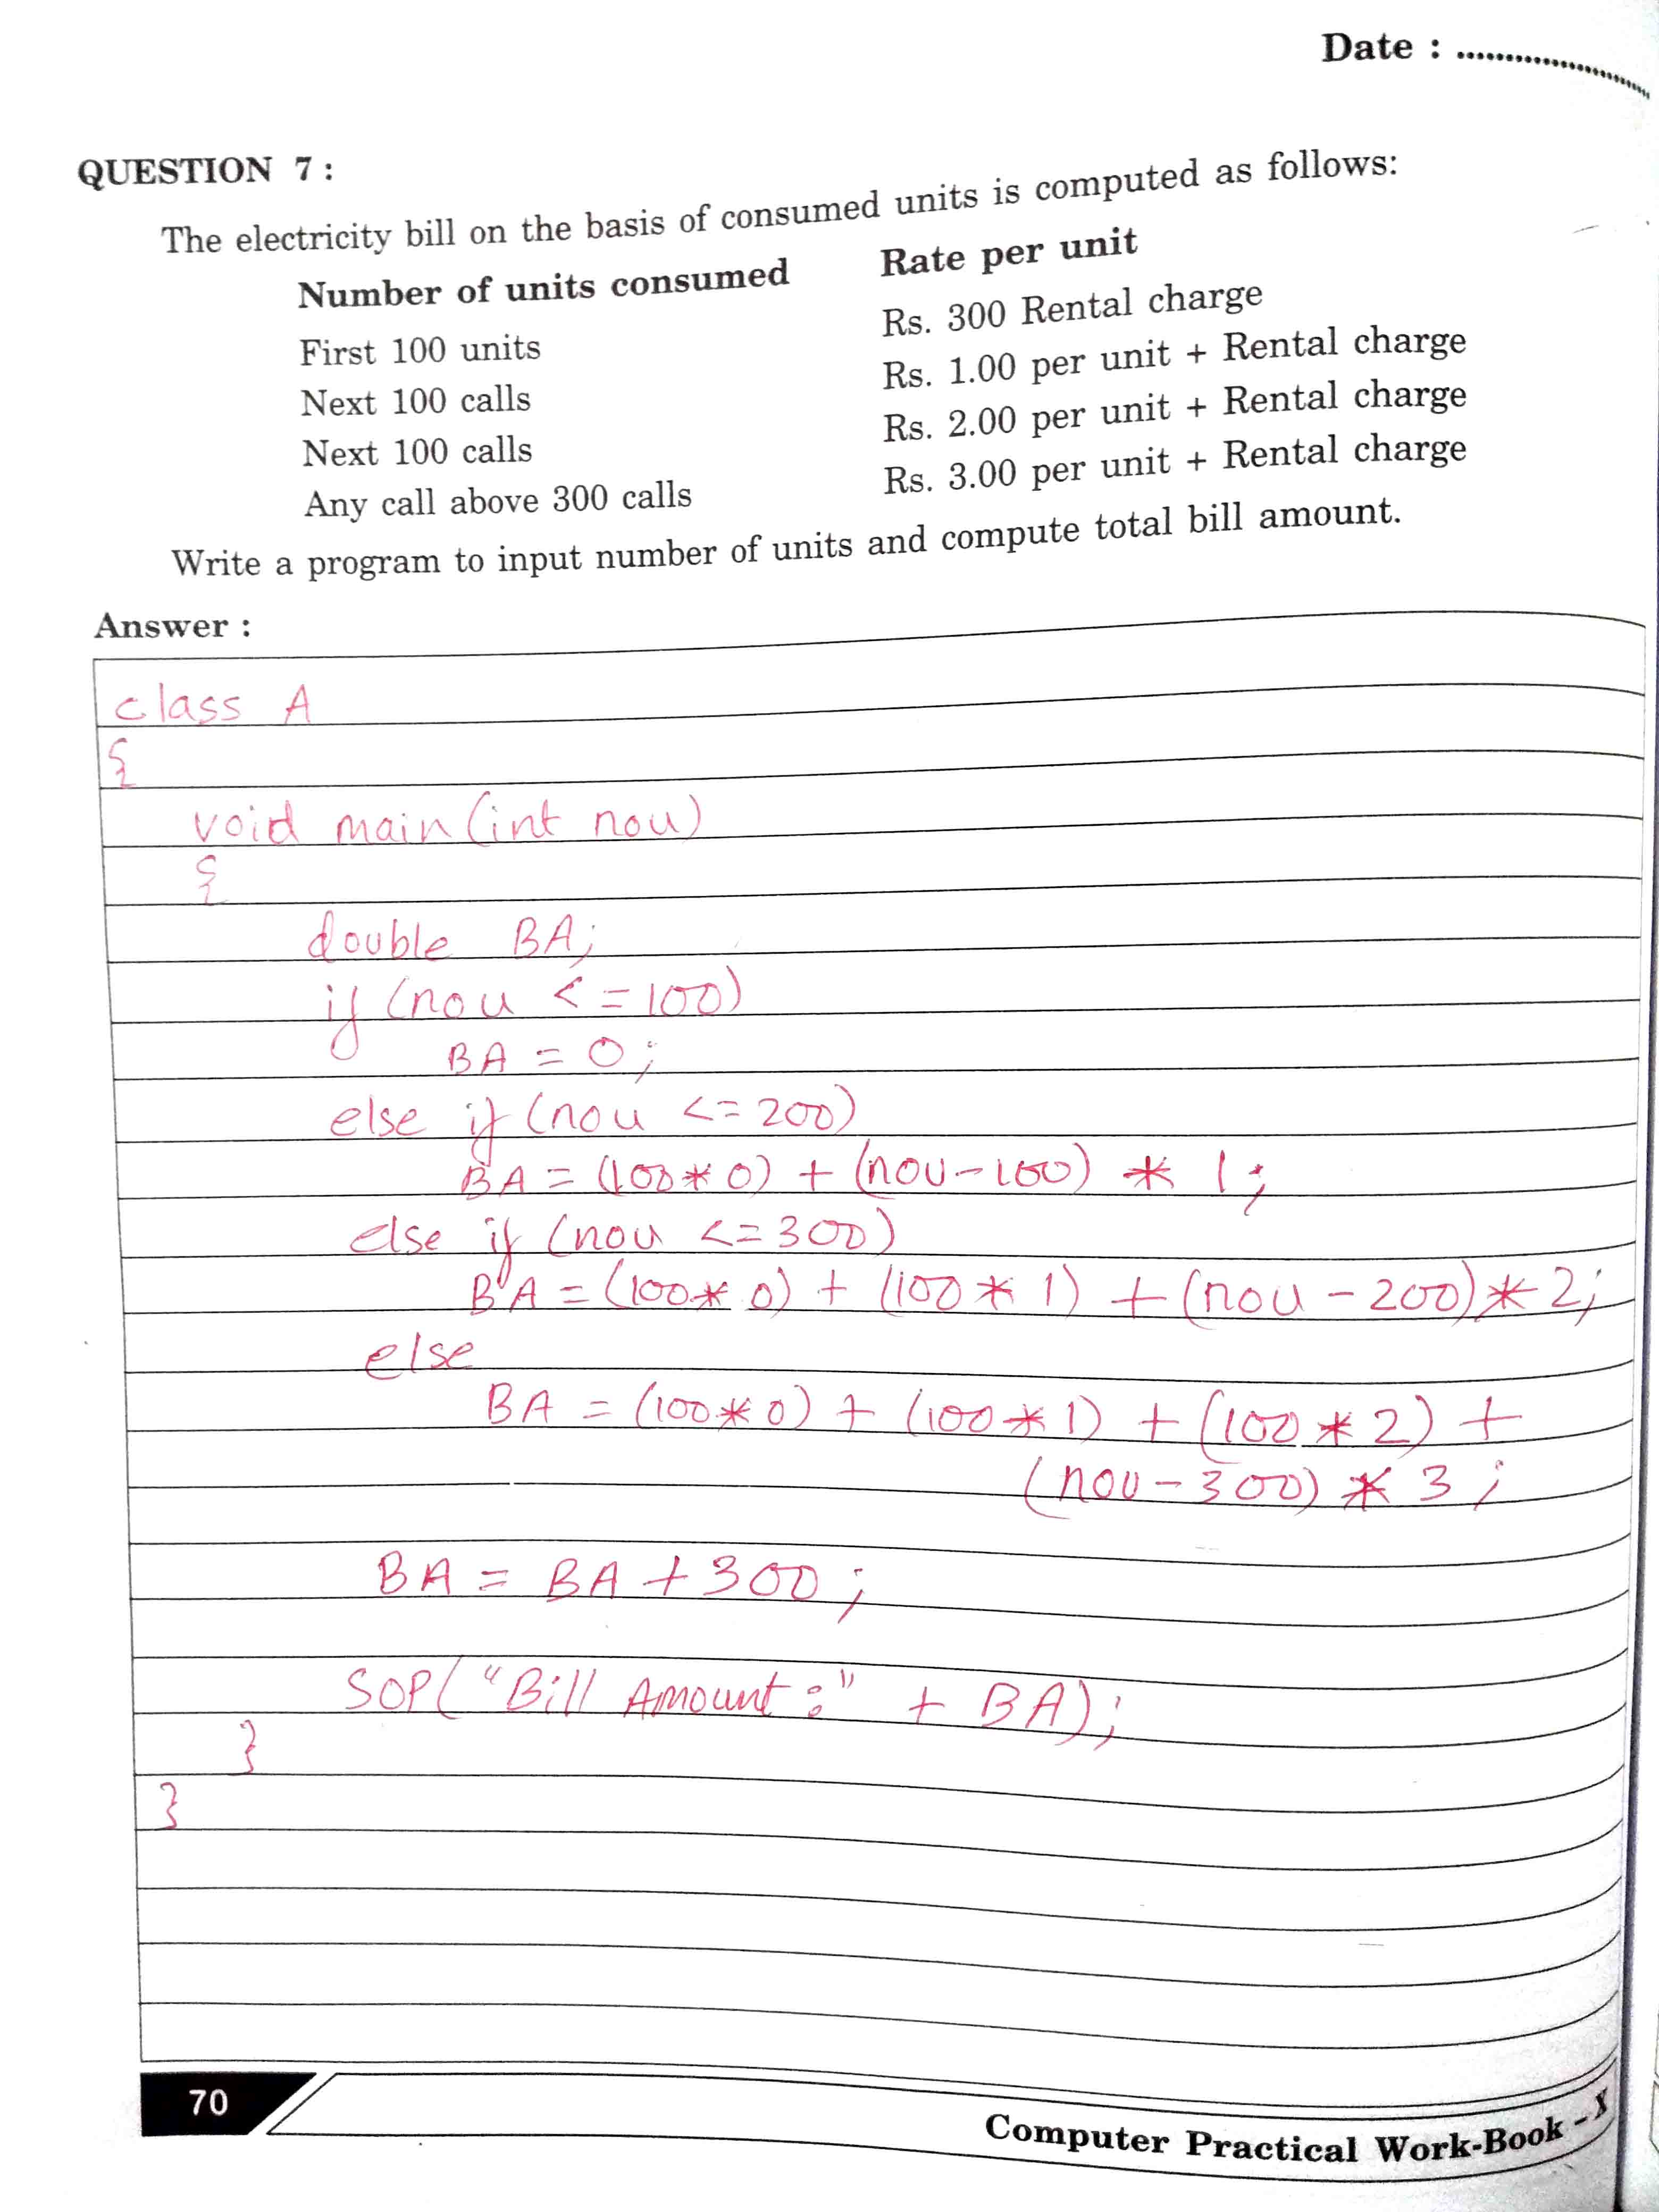 Date : ....................
QUESTION 7 :
The electricity bill on the basis of consumed units is computed as follows:
Number of units consumed Rate per unit
First 100 units Rs. 300 Rental charge
Next 100 calls Rs. 1.00 per unit + Rental charge
Next 100 calls Rs. 2.00 per unit + Rental charge
Any call above 300 calls Rs. 3.00 per unit + Rental charge
Write a program to input number of units and compute total bill amount.
Answer :
class A
{
void main(int nou)
{
double BA;
if (nou <=100)
BA = 0;
else if (nou <=200)
BA = (100*0) + (nou-100) * 1;
else if (nou <=300)
BA = (100*0) + (100*1) + (nou-200)*2;
else
BA = (100*0) + (100*1) + (100*2) +
(nou-300) * 3;
BA = BA+300;
SOP("Bill Amount:" + BA);
}
}
70
Computer Practical Work-Book - X